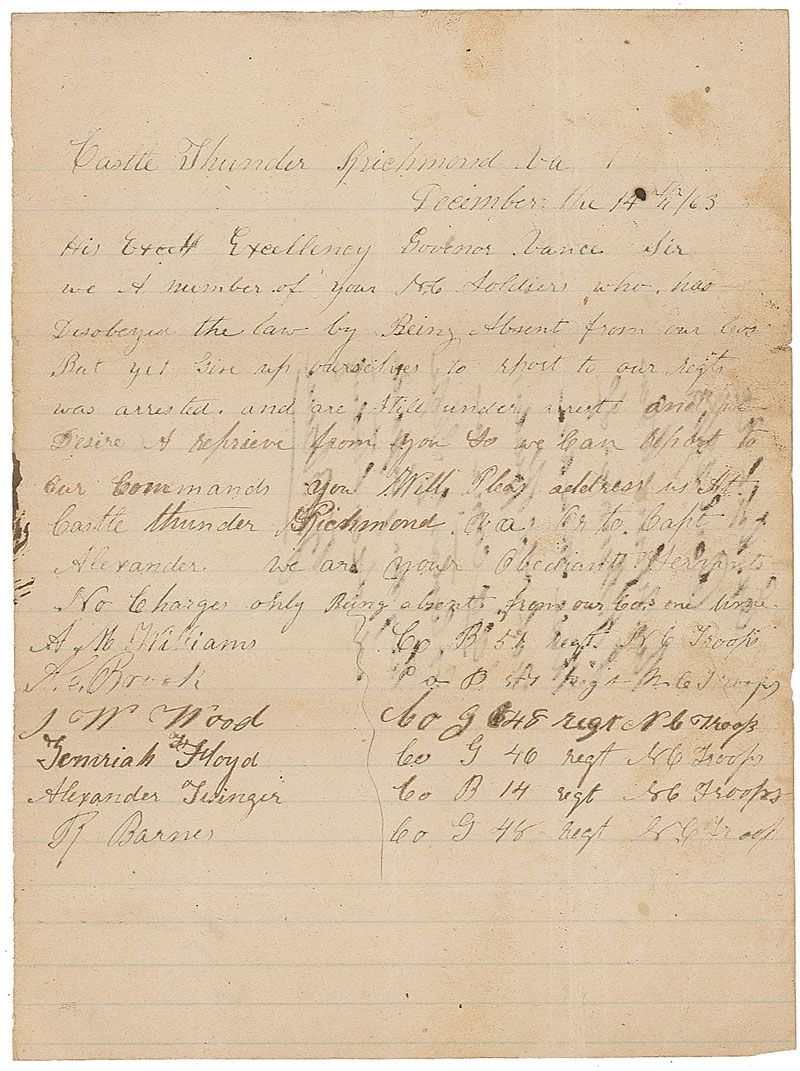 Castle Thunder Richmond Va
December the 14th /63
His Excell Excellency Govenor Vance Sir
we A number of your NC Soldiers who has
Disobeyed the law by Being Absent from our Cos
But yet Give up ourselves to rport to our regts
was arrested. and are still under arrest and we
Desire A reprieve from you So we Can report to
our Commands you Will Pleas address us At
Castle thunder Richmond Va Or to Capt
Alexander. we are your Obediant Servants
No Charges only Being absent from our Cos one time
A M Williams Co B 54 regt. NC Troops
Brook Co B 54 regt NC Troops
J W Wood Co G 48 regt NC Troops
Floyd Co G 46 regt NC Troops
Alexander Co B 14 regt NC Troops
Barnes Co G 48 regt NC Troop